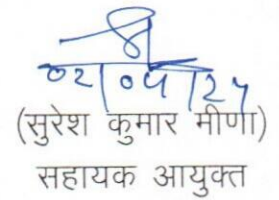 ०२|०५|२५
(सुरेश कुमार मीणा)
सहायक आयुक्त